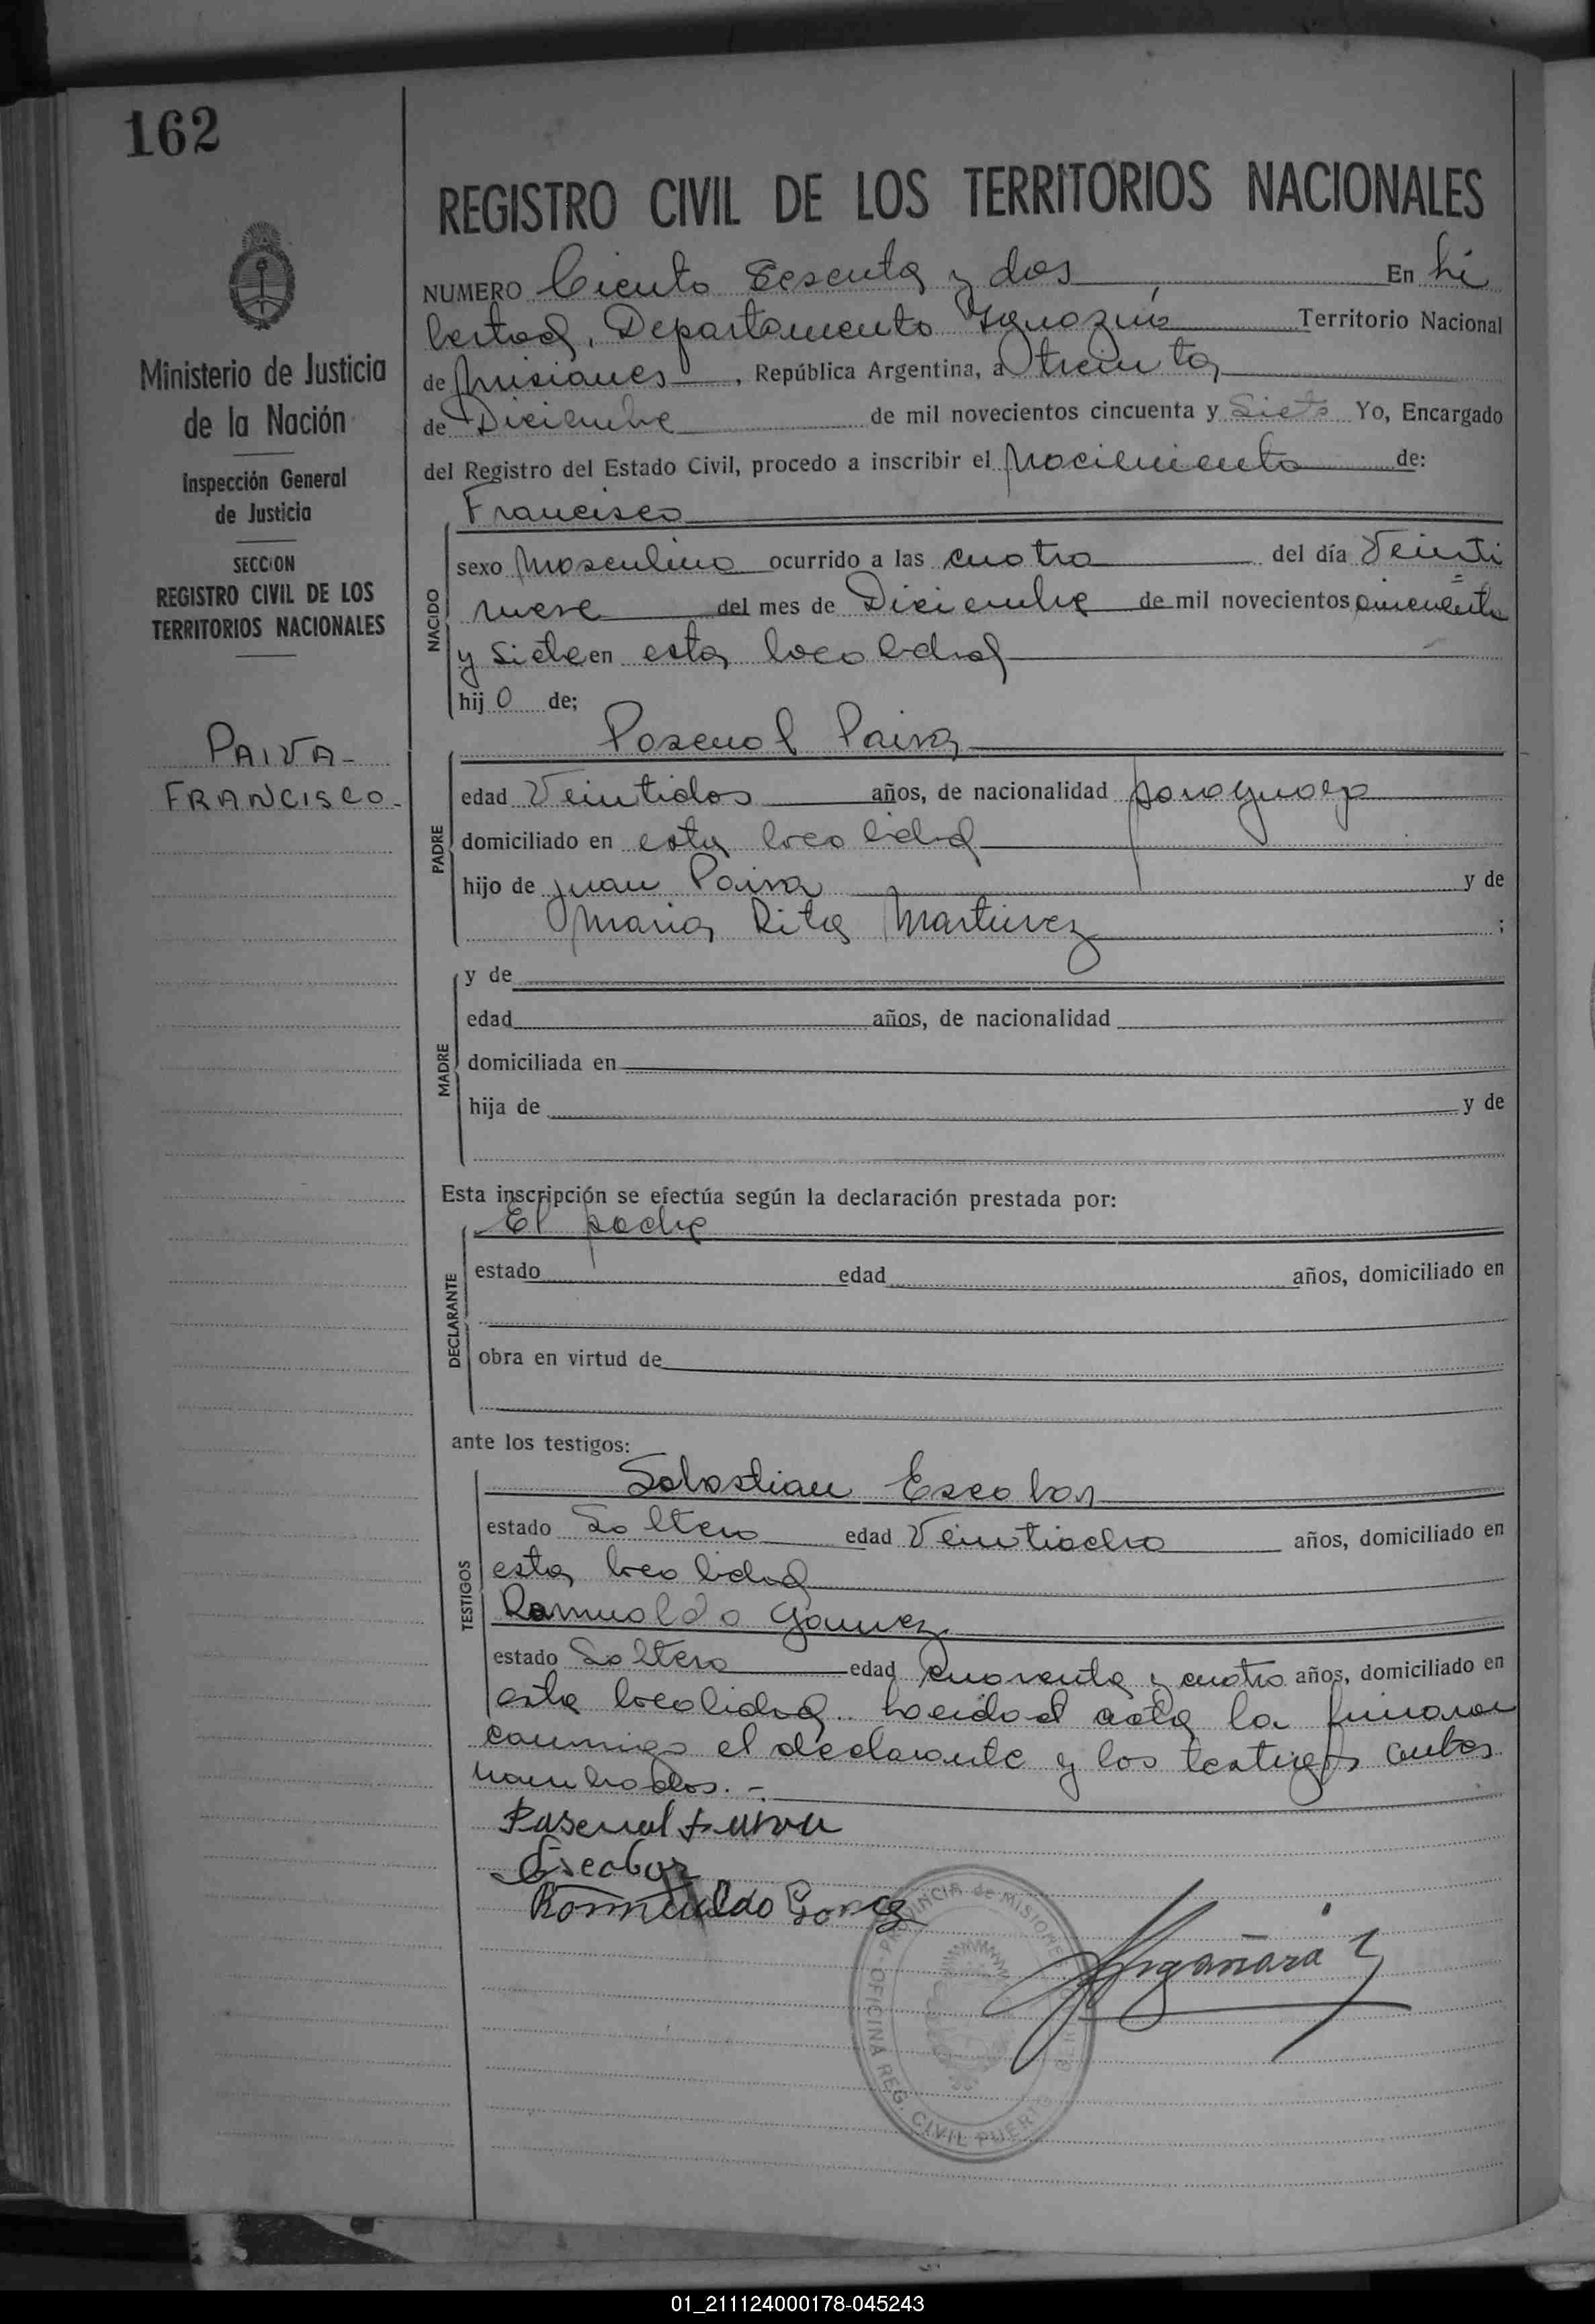 162
Ministerio de Justicia
de la Nación
Inspección General
de Justicia
SECCION
REGISTRO CIVIL DE LOS
TERRITORIOS NACIONALES
PAIVA-
FRANCISCO-
REGISTRO CIVIL DE LOS TERRITORIOS NACIONALES
NUMERO Ciento Sesenta y dos En Li
bertad, Departamento Iguazú Territorio Nacional
de Misiones, República Argentina, a treinta
de Diciembre de mil novecientos cincuenta y Siete Yo, Encargado
del Registro del Estado Civil, procedo a inscribir el nacimiento de:
Francisco
NACIDO
sexo masculino ocurrido a las cuatro del día Veinti
nueve del mes de Diciembre de mil novecientos cincuenta
y Siete en esta localidad
hijo de;
PADRE
Pascual Paiva
edad Veintidos años, de nacionalidad paraguayo
domiciliado en esta localidad
hijo de Juan Paiva y de
Maria Rita Martinez ;
MADRE
y de
edad años, de nacionalidad
domiciliada en
hija de y de
Esta inscripción se efectúa según la declaración prestada por:
DECLARANTE
El padre
estado edad años, domiciliado en
obra en virtud de
ante los testigos:
TESTIGOS
Sebastian Escobar
estado Soltero edad Veintiocho años, domiciliado en
esta localidad
Romualdo Gomez
estado Soltero edad cuarenta y cuatro años, domiciliado en
esta localidad. Leida el acta la firmaron
conmigo el declarante y los testigos antes
nombrados.-
Pascual Paiva
Escobar
Romualdo Gomez
PROVINCIA de MISIONES
OFICINA REG. CIVIL PUERTO
01_211124000178-045243